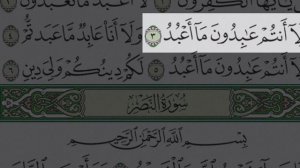 يَٰٓأَيُّهَا ٱلْكَٰفِرُونَ
لَآ أَنتُمْ عَٰبِدُونَ مَآ أَعْبُدُ ٣ وَلَآ أَنَا۠ عَابِدٌ مَّا عَبَدتُّمْ ٤
لَآ أَنتُمْ عَٰبِدُونَ مَآ أَعْبُدُ ٥ لَكُمْ دِينُكُمْ وَلِيَ دِينِ ٦
سُورَةُ النَّصْرِ
بِسْمِ ٱللَّهِ ٱلرَّحْمَٰنِ ٱلرَّحِيمِ